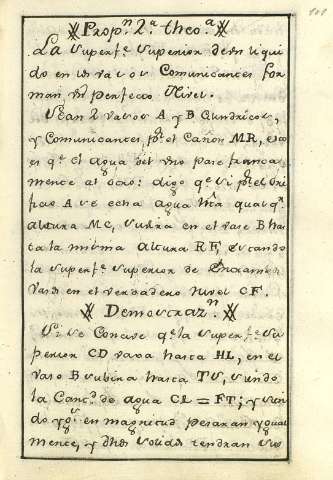 Propⁿ 2.ª theo.ª
La superf.e superior de un liqui
do en los vasos Comunicantes for
man un perfecto Nivel.
Sean 2 vasos A y B Cilindricos,
y Comunicantes, p.r el Cañon MR, esto
es q.e el agua del uno pase franca
mente al otro: digo q.e si p.r el ori
ficio A se echa agua htã qualq.r
altura MC, subira en el vaso B has
ta la misma altura RF, estando
la superf.e superior de
en el verdadero Nivel CF.
Demostraz.n
Si se Concive q.e la superf.e Su
perior CD vaxa hasta HL, en el
vaso B subira hasta TS, siendo
la Cant.d de agua CL = FT; y sien
do yg.s en magnitud pesaran ygual
mente, y dhos solidos tendran sus